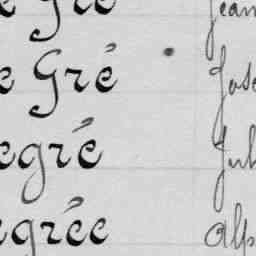 e Gré Jean
e Gré Jose
egré Jul
egrée Alp